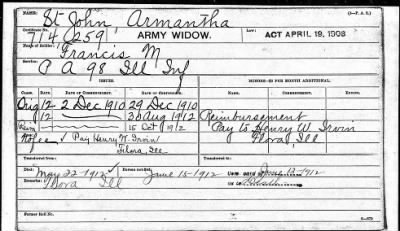 NAME: St John, Armantha (3—P. A. 5.)
Certificate No. 714,259 ARMY WIDOW. ACT APRIL 19, 1908
Name of Soldier: Francis M
Service: 98 Ill Inf
ISSUES. $2 PER MONTH ADDITIONAL
CLASS. RATE. DATE OF COMMENCEMENT. DATE OF CERTIFICATE. DATE OF COMMENCEMENT. DATE OF CERTIFICATE.
Orig 12 2 Dec 1910 29 Dec 1910
12 30 Aug 1912 Reimbursement
15 Oct 1912 Pay to Henry W. Irvin
No fee Pay Henry W. Irvin Flora Ill
Flora, Ill
Transferred from
Transferred to
Died: May 22-1912 Bureau notified June 15-1912
Remarks: Flora Ill
Former Roll No.